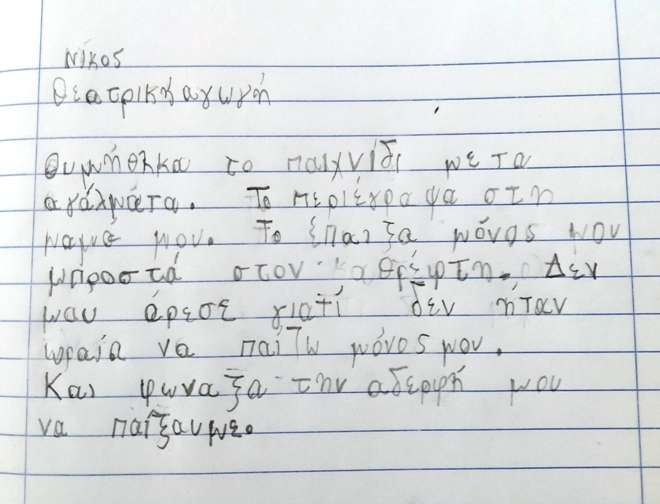 Νίκος
Θεατρική αγωγή
Θυμήθηκα το παιχνίδι με τα
αγάλματα. Το περιέγραψα στη
μαμά μου. Το έπαιξα μόνος μου
μπροστά στον καθρέφτη. Δεν
μου άρεσε γιατί δεν ήταν
ωραία να παίζω μόνος μου.
Και φωναξα την αδερφή μου
να παίξουμε.